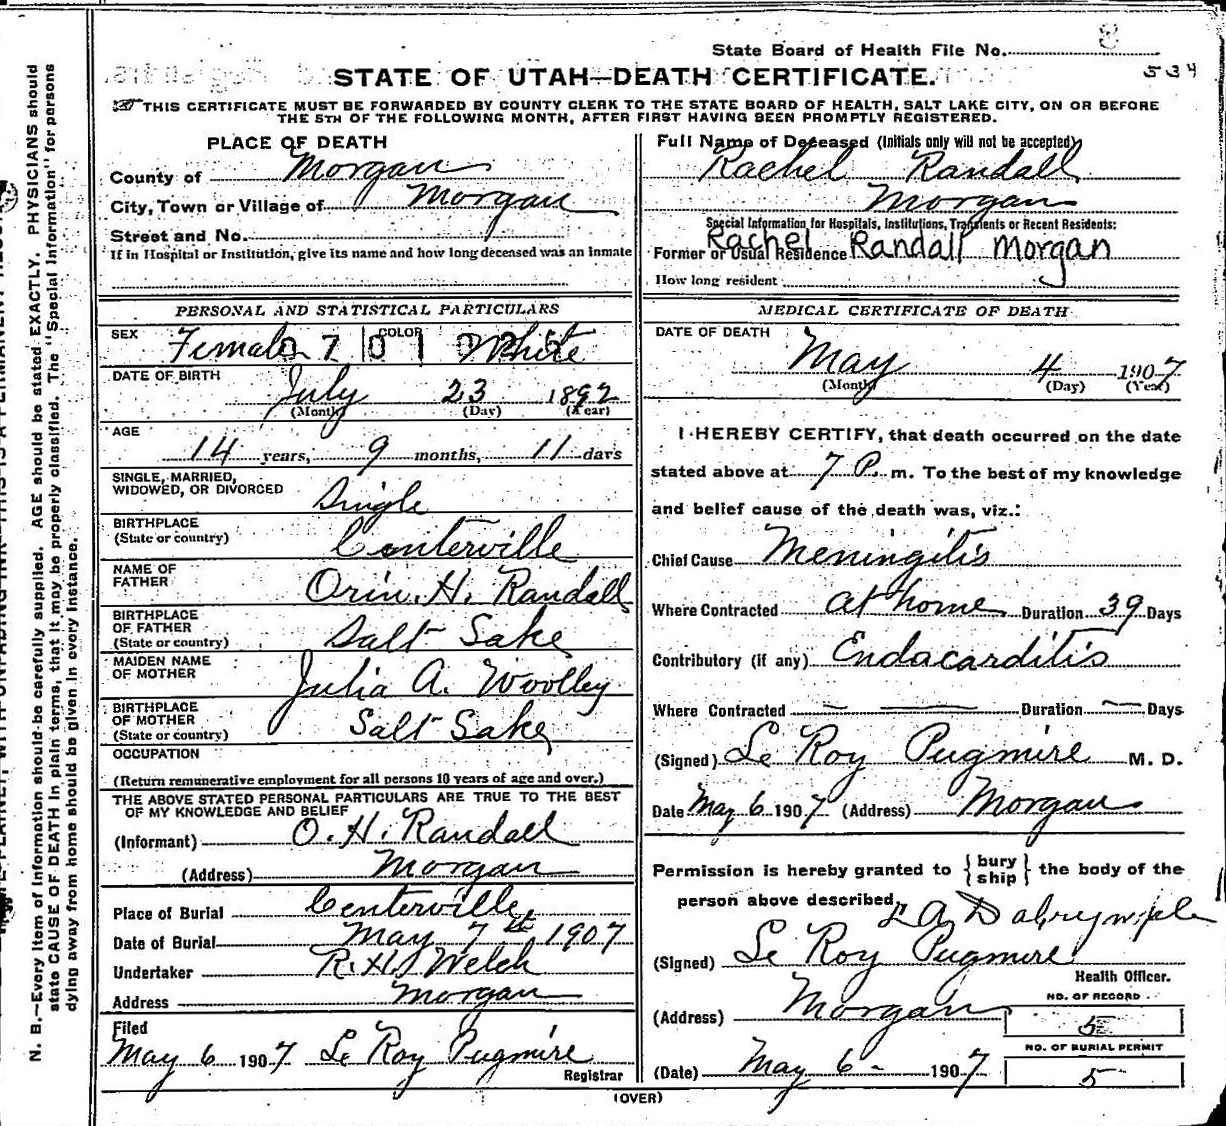 State Board of Health File No. 8
534
STATE OF UTAH—DEATH CERTIFICATE.
THIS CERTIFICATE MUST BE FORWARDED BY COUNTY CLERK TO THE STATE BOARD OF HEALTH, SALT LAKE CITY, ON OR BEFORE
THE 5TH OF THE FOLLOWING MONTH, AFTER FIRST HAVING BEEN PROMPTLY REGISTERED.
PLACE OF DEATH
County of Morgan
City, Town or Village of Morgan
Street and No.
If in Hospital or Institution, give its name and how long deceased was an inmate
PERSONAL AND STATISTICAL PARTICULARS
SEX Female COLOR White
DATE OF BIRTH
July 23 1892
(Month) (Day) (Year)
AGE
14 years, 9 months, 11 days
SINGLE, MARRIED,
WIDOWED, OR DIVORCED Single
BIRTHPLACE
(State or country) Centerville
NAME OF
FATHER Orin. H. Randall
BIRTHPLACE
OF FATHER
(State or country) Salt Lake
MAIDEN NAME
OF MOTHER Julia A. Woolley
BIRTHPLACE
OF MOTHER
(State or country) Salt Lake
OCCUPATION
(Return remunerative employment for all persons 10 years of age and over.)
THE ABOVE STATED PERSONAL PARTICULARS ARE TRUE TO THE BEST
OF MY KNOWLEDGE AND BELIEF
(Informant) O. H. Randall
(Address) Morgan
Place of Burial Centerville
Date of Burial May 7th 1907
Undertaker R. H. Welch
Address Morgan
Filed
May 6 1907 Le Roy Pugmire
Registrar
Full Name of Deceased (Initials only will not be accepted)
Rachel Randall
Morgan
Special Information for Hospitals, Institutions, Transients or Recent Residents:
Former or Usual Residence Rachel Randall Morgan
How long resident
MEDICAL CERTIFICATE OF DEATH
DATE OF DEATH
May 4 1907
(Month) (Day) (Year)
I HEREBY CERTIFY, that death occurred on the date
stated above at 7 P. m. To the best of my knowledge
and belief cause of the death was, viz.:
Chief Cause Meningitis
Where Contracted at home Duration 39 Days
Contributory (if any) Endacarditis
Where Contracted — Duration — Days
(Signed) Le Roy Pugmire M. D.
Date May 6 1907 (Address) Morgan
Permission is hereby granted to {bury ship} the body of the
person above described, L A Dalrymple
(Signed) Le Roy Pugmire
Health Officer.
(Address) Morgan
NO. OF RECORD
5
NO. OF BURIAL PERMIT
5
(Date) May 6 - 1907
(OVER)
N. B.—Every item of information should be carefully supplied. AGE should be stated EXACTLY. PHYSICIANS should
state CAUSE OF DEATH in plain terms, that it may be properly classified. The "Special Information" for persons
dying away from home should be given in every instance.